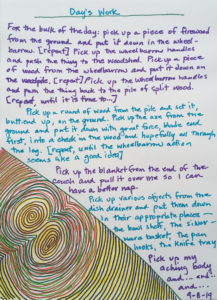 Day's Work
For the bulk of the day: pick up a piece of firewood
from the ground and put it down in the wheel-
barrow. [repeat] Pick up the wheelbarrow handles
and push the thing to the woodshed. Pick up a piece
of wood from the wheelbarrow and put it down on
the woodpile. [repeat] Pick up the wheelbarrow handles
and push the thing back to the pile of split wood.
[repeat, until it is time to...]
Pick up a round of wood from the pile and set it,
butt end up, on the ground. Pick up the axe from the
ground and put it down with great force, blade end
first, into a check in the wood and hopefully all through
the log. [repeat, until the wheelbarrow action
seems like a good idea]
Pick up the blanket from the end of the
couch and pull it over me so I can
have a better nap.
Pick up various objects from the
dish drainer and put them down
in their appropriate places -
the bowl shelf, the silver-
ware basket, the pan
hooks, the knife tray
Pick up my
aching body
and... and...
and...